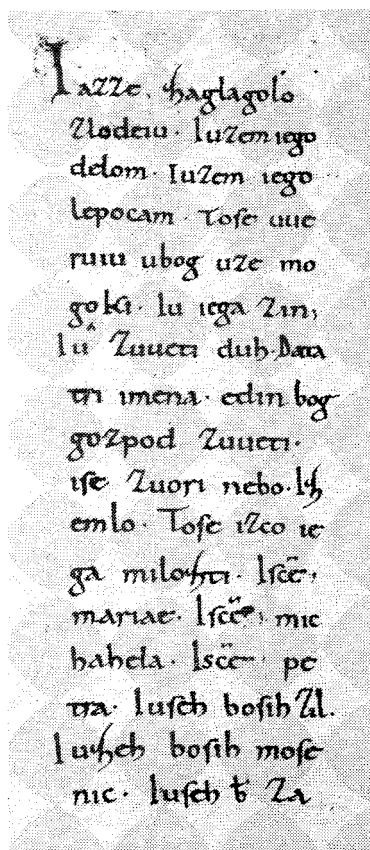 Iazze. zaglagolo
zlodeiu. Iuzem iego
delom. Iuzem iego
lepocam. Tose uue
ruiu ubog uze mo
goki. Iu iega zin,
Iu zuueti duh. Data
tri imena. edin bog
gozpod zuueti.
ise zuori nebo. Iz
emlo. Tose izco ie
ga milozti. Iscē.
mariae. Iscē. mic
hahela. Iscē. pe
tra. Iuseh bosih zil.
Iuzeh bosih mose
nic. Iuseh ƀ za